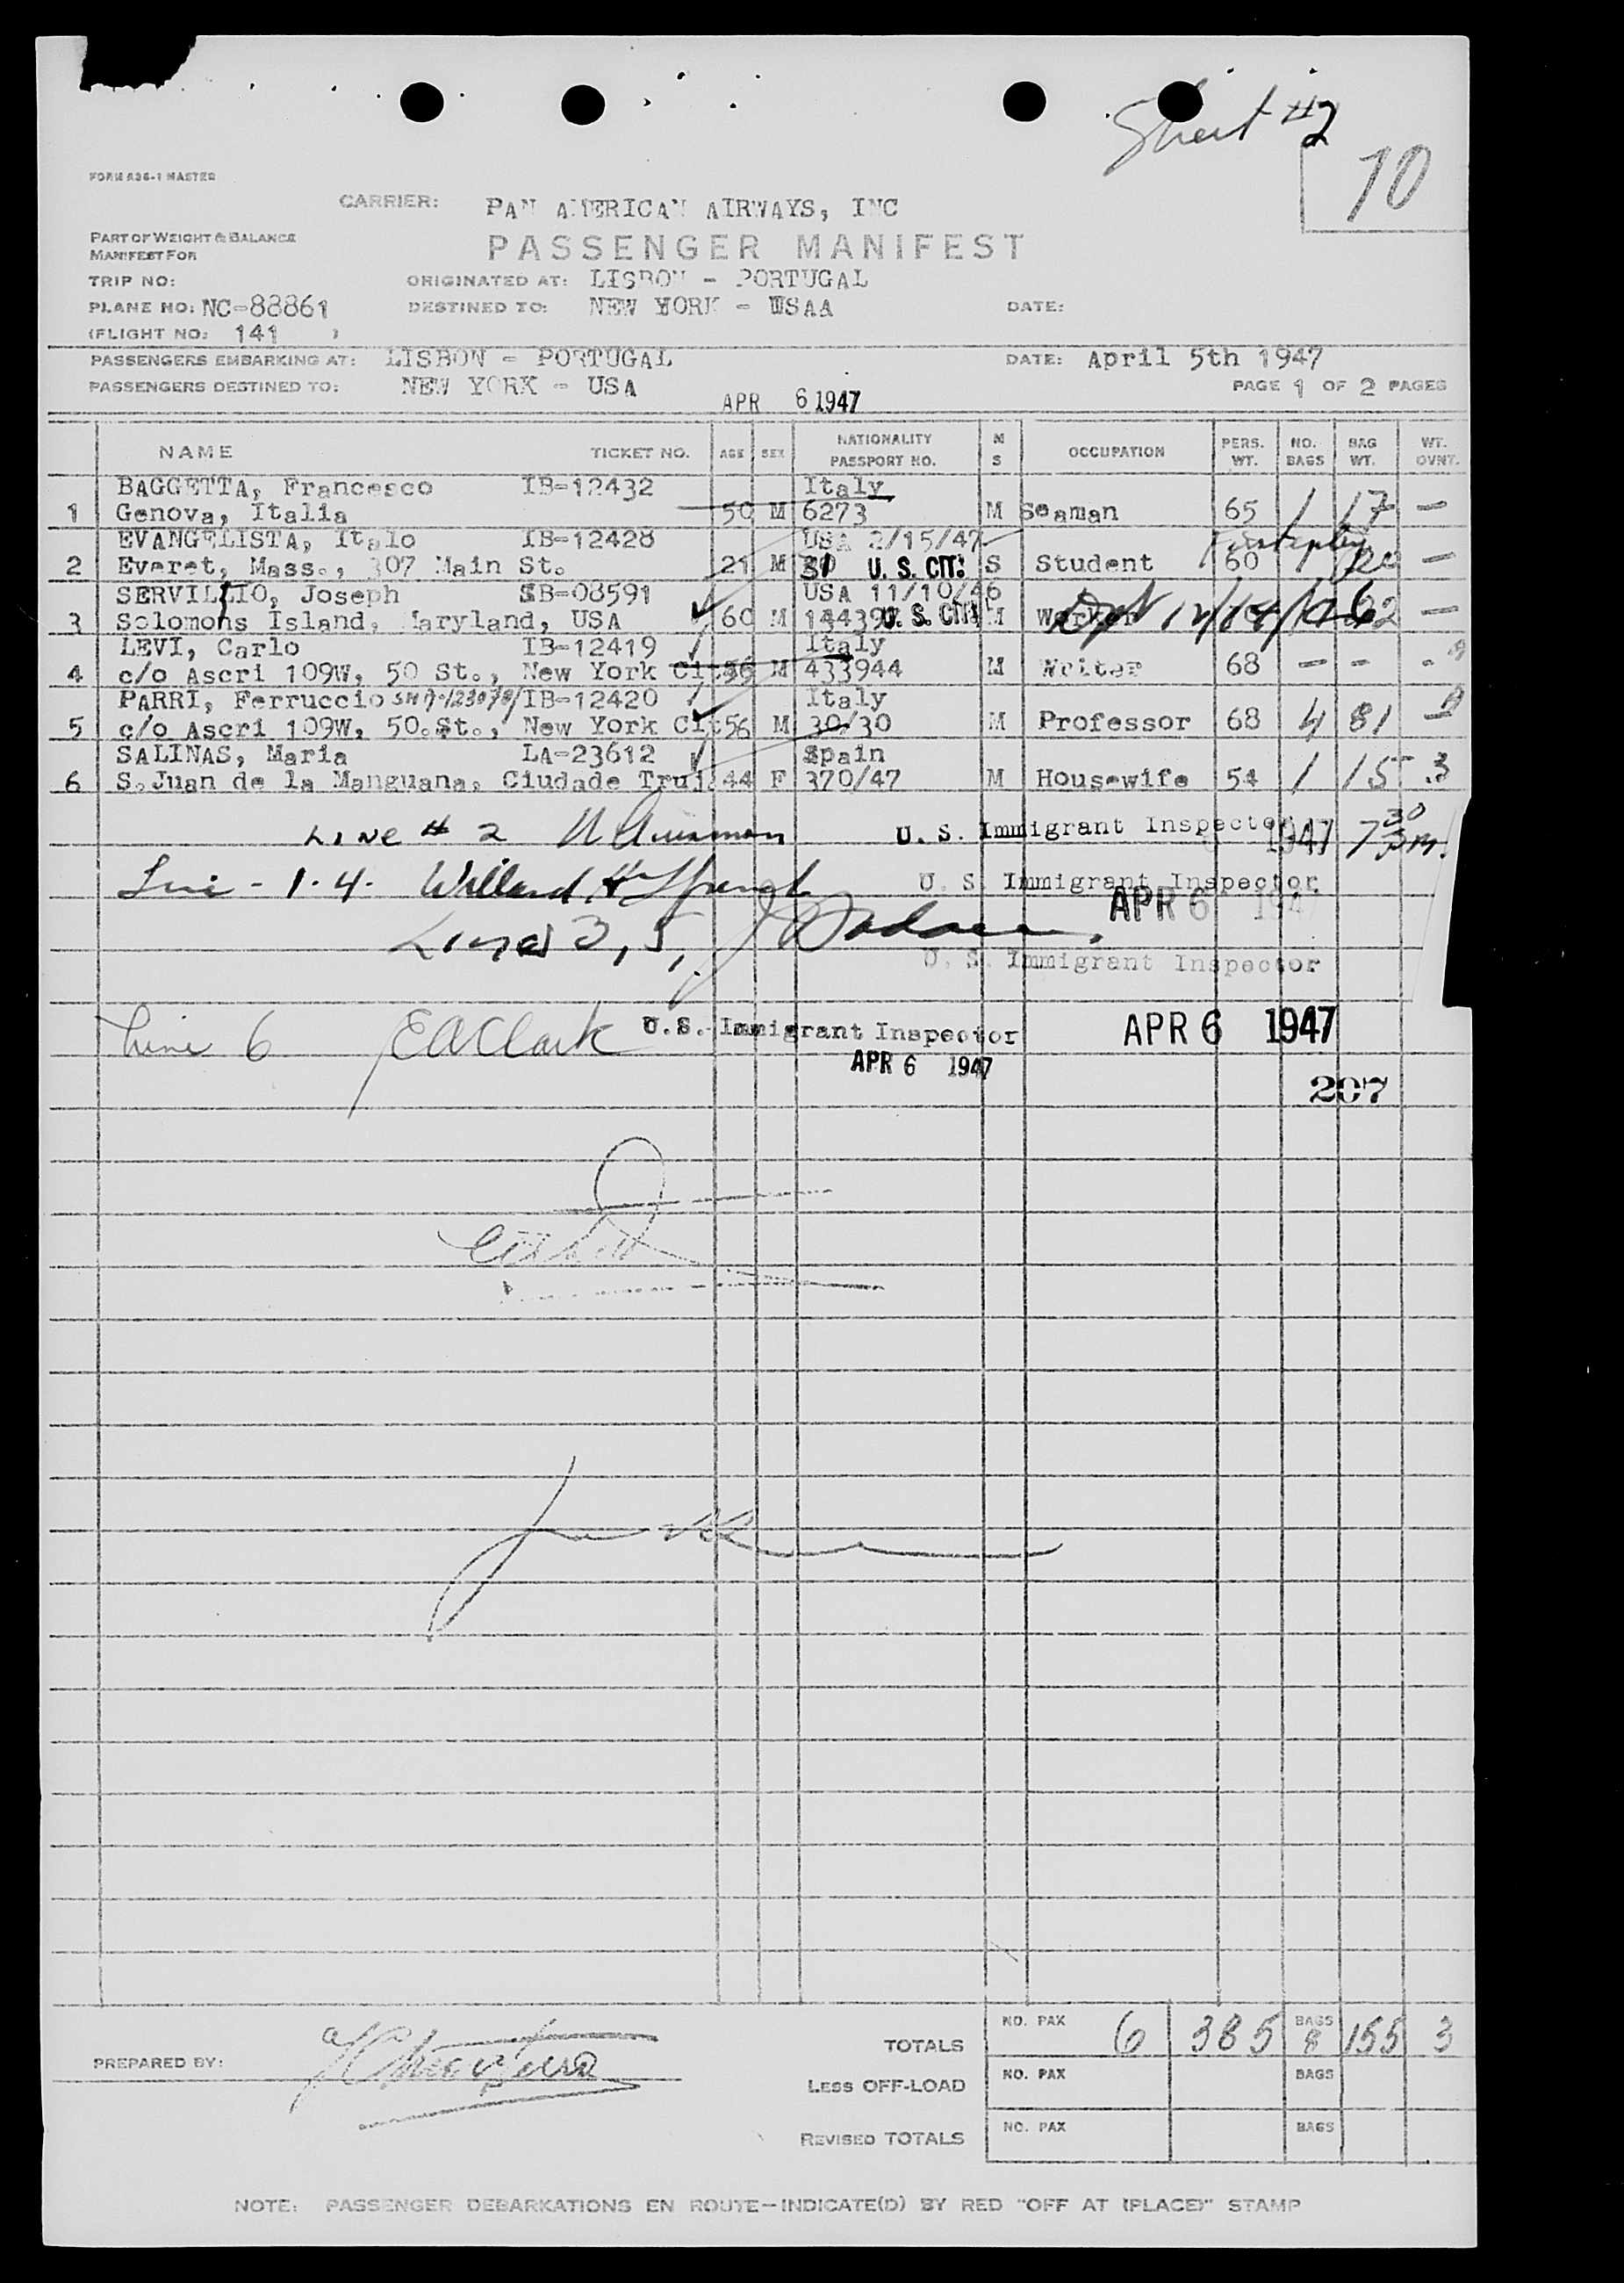 Sheet #2
10
FORM A36-1 MASTER
CARRIER: PAN AMERICAN AIRWAYS, INC
PART OF WEIGHT & BALANCE
MANIFEST FOR
PASSENGER MANIFEST
TRIP NO: ORIGINATED AT: LISBON - PORTUGAL
PLANE NO: NC-88861 DESTINED TO: NEW YORK - USAA DATE:
(FLIGHT NO: 141 )
PASSENGERS EMBARKING AT: LISBON - PORTUGAL DATE: April 5th 1947
PASSENGERS DESTINED TO: NEW YORK - USA PAGE 1 OF 2 PAGES
APR 6 1947
NAME TICKET NO. AGE SEX NATIONALITY PASSPORT NO. M S OCCUPATION PERS. WT. NO. BAGS BAG WT. WT. OVNT.
BAGGETTA, Francesco IB-12432 Italy
1 Genova, Italia 50 M 6273 M Seaman 65 1 17 -
EVANGELISTA, Italo IB-12428 USA 2/15/47
2 Everet, Mass., 307 Main St. 21 M 31 U. S. CIT: S Student 60 1 20 -
SERVILLIO, Joseph IB-08591 USA 11/10/46
3 Solomons Island, Maryland, USA 60 M U. S. CIT: M Worker 22 -
LEVI, Carlo IB-12419 Italy
4 c/o Ascri 109W, 50 St., New York Cit M 433944 M 68 - - -
PARRI, Ferruccio IB-12420 Italy
5 c/o Ascri 109W, 50.St., New York Cit 56 M 30/30 M Professor 68 4 81 -
SALINAS, Maria LA-23612 Spain
6 S.Juan de la Manguana, Ciudade Truj. 44 F 370/47 M Housewife 54 1 15 3
Line # 2 U. S. Immigrant Inspector 1947 7 30 pm.
Line - 1. 4. Willard H U. S. Immigrant Inspector
APR 6 1947
Lines 3, 5,
U. S. Immigrant Inspector
Line 6 EAClark U.S. Immigrant Inspector APR 6 1947
APR 6 1947
207
TOTALS NO. PAX 6 385 BAGS 8 155 3
PREPARED BY:
LESS OFF-LOAD NO. PAX BAGS
REVISED TOTALS NO. PAX BAGS
NOTE: PASSENGER DEBARKATIONS EN ROUTE-INDICATE(D) BY RED "OFF AT (PLACE)" STAMP